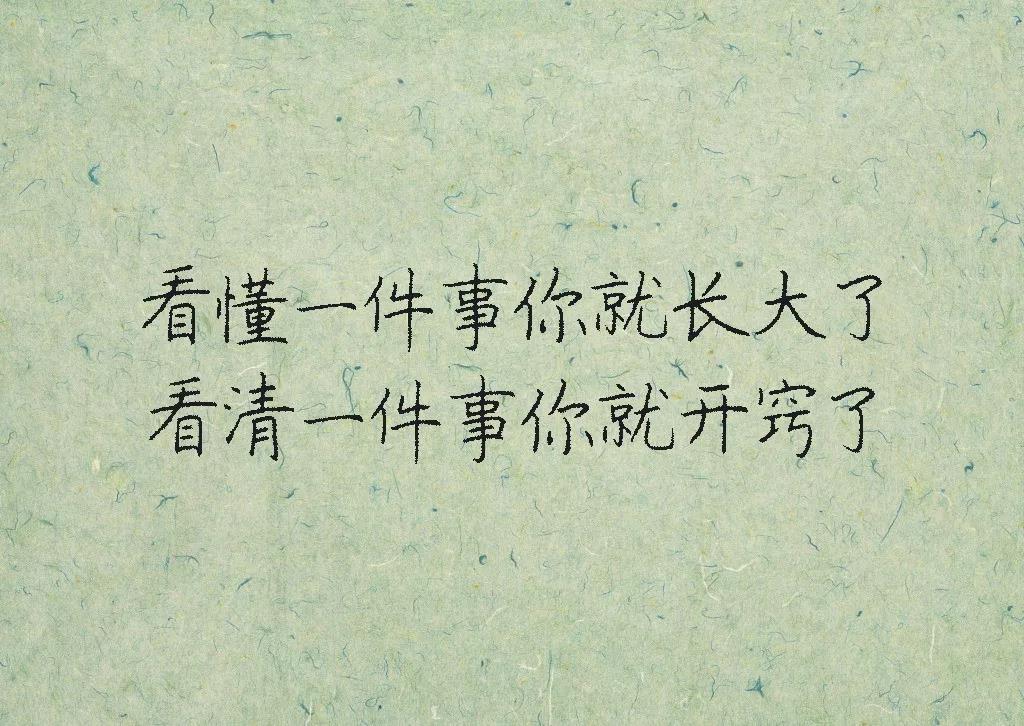 看懂一件事你就长大了
看清一件事你就开窍了